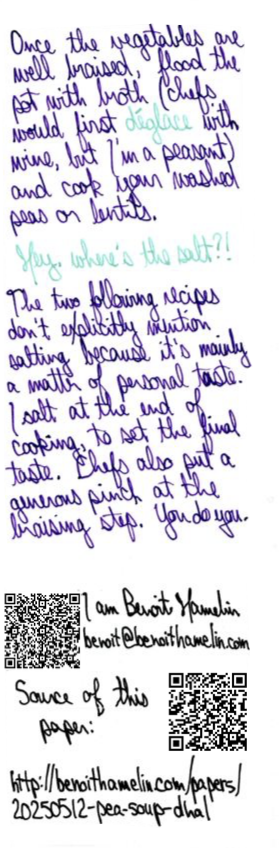 Once the vegetables are
well braised, flood the
pot with broth (chefs
would first déglace with
wine, but I'm a peasant)
and cook your washed
peas or lentils.
Hey, where's the salt?!
The two following recipes
don't explicitly mention
salting, because it's mainly
a matter of personal taste.
I salt at the end of
cooking, to set the final
taste. Chefs also put a
generous pinch at the
braising step. You do you.
I am Benoit Hamelin
benoit@benoithamelin.com
Source of this
paper:
http://benoithamelin.com/papers/
20250512-pea-soup-dhal